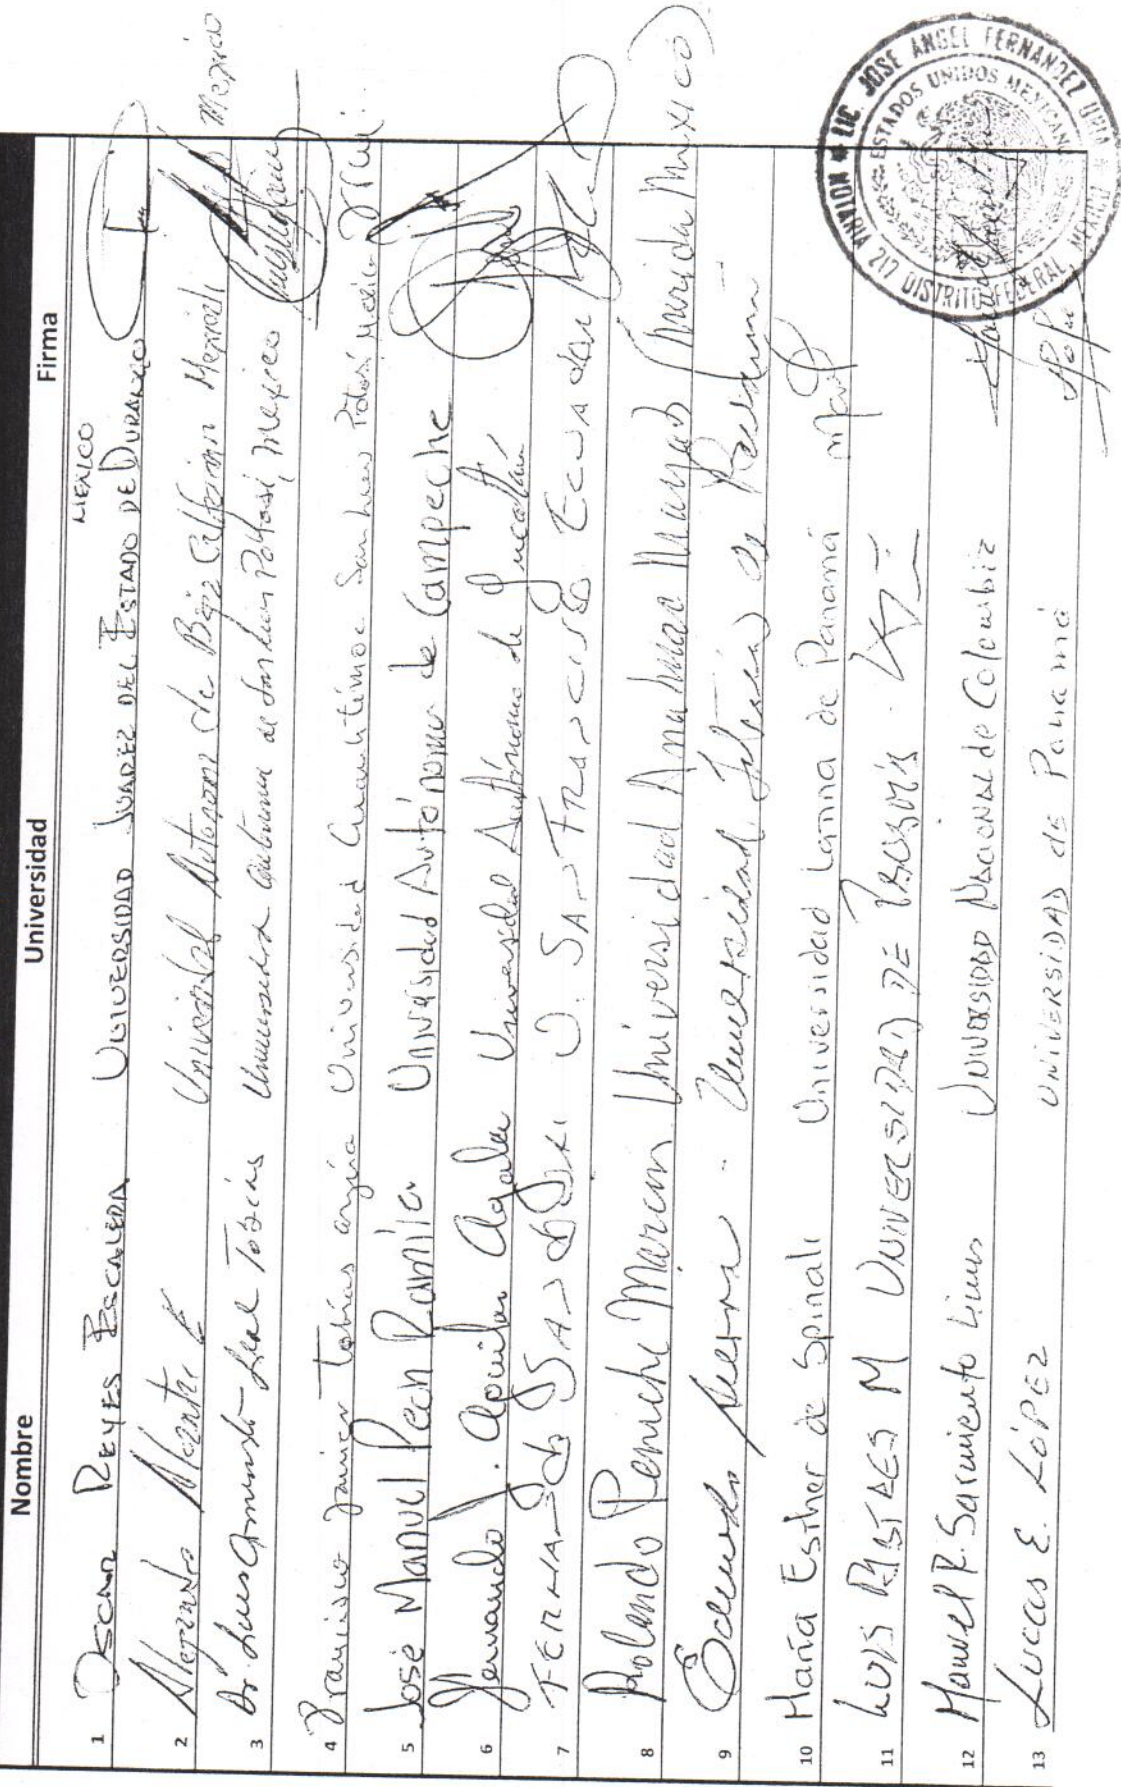 Nombre Universidad Firma
1 OSCAR REYES ESCALERA UNIVERSIDAD JUAREZ DEL ESTADO DE DURANGO MEXICO
2 Alejandro Universidad Autonoma de Baja California Mexicali Mexico
3 Dr. Luis Armando Leal Tobías Universidad Autonoma de San Luis Potosí, Mexico
4 Francisco Javier Tobías Universidad Cuauhtémoc San Luis Potosí Mexico
5 José Manuel Pech Ramírez Universidad Autónoma de Campeche
6 Fernando J. Aguilar Ayala Universidad Autónoma de Yucatán
7 FERNANDO U. SAN FRANCISCO Ecuador
8 Rolando Peniche Marcin Universidad Anahuac Mayab (Merida Mexico)
9 Universidad
10 María Esther de Spinali Universidad Latina de Panamá
11 LUIS M UNIVERSIDAD DE
12 Manuel R. Sarmiento Limas UNIVERSIDAD NACIONAL de Colombia
13 Lucas E. LÓPEZ UNIVERSIDAD de Panamá
LIC. JOSE ANGEL FERNANDEZ URIA
NOTARIA 217 DISTRITO FEDERAL, MEXICO
ESTADOS UNIDOS MEXICANOS